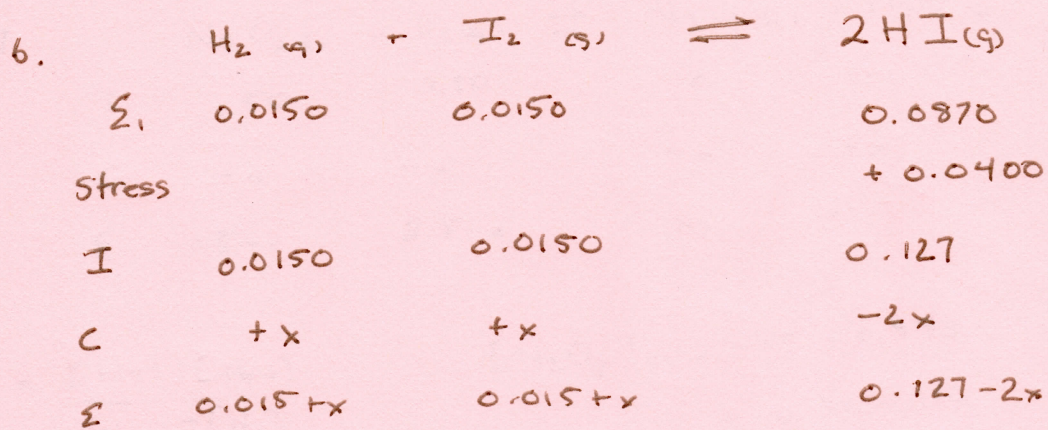 6. H₂ (g) + I₂ (g) ⇌ 2HI(g)
E₁ 0.0150 0.0150 0.0870
Stress + 0.0400
I 0.0150 0.0150 0.127
C + x + x -2x
E 0.015+x 0.015+x 0.127-2x